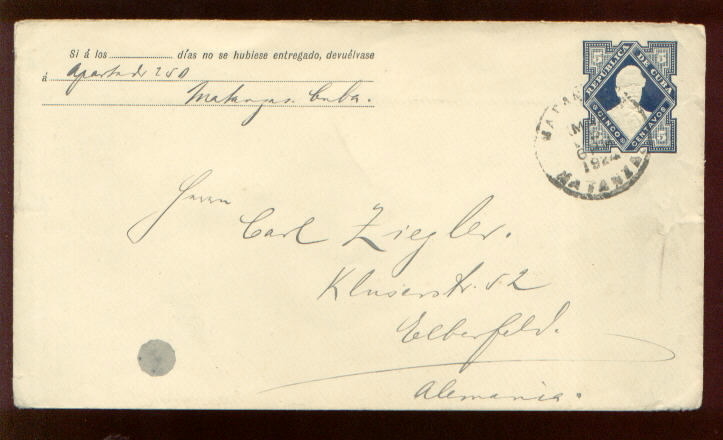 Si á los ............ días no se hubiese entregado, devuélvase
á Apartado 250
Matanzas. Cuba.
REPUBLICA DE CUBA
5 5
CINCO CENTAVOS
5 5
MATANZAS
1924
MATANZAS
Herrn
Carl Ziegler.
Kluserstr. 52
Elberfeld.
Alemania.